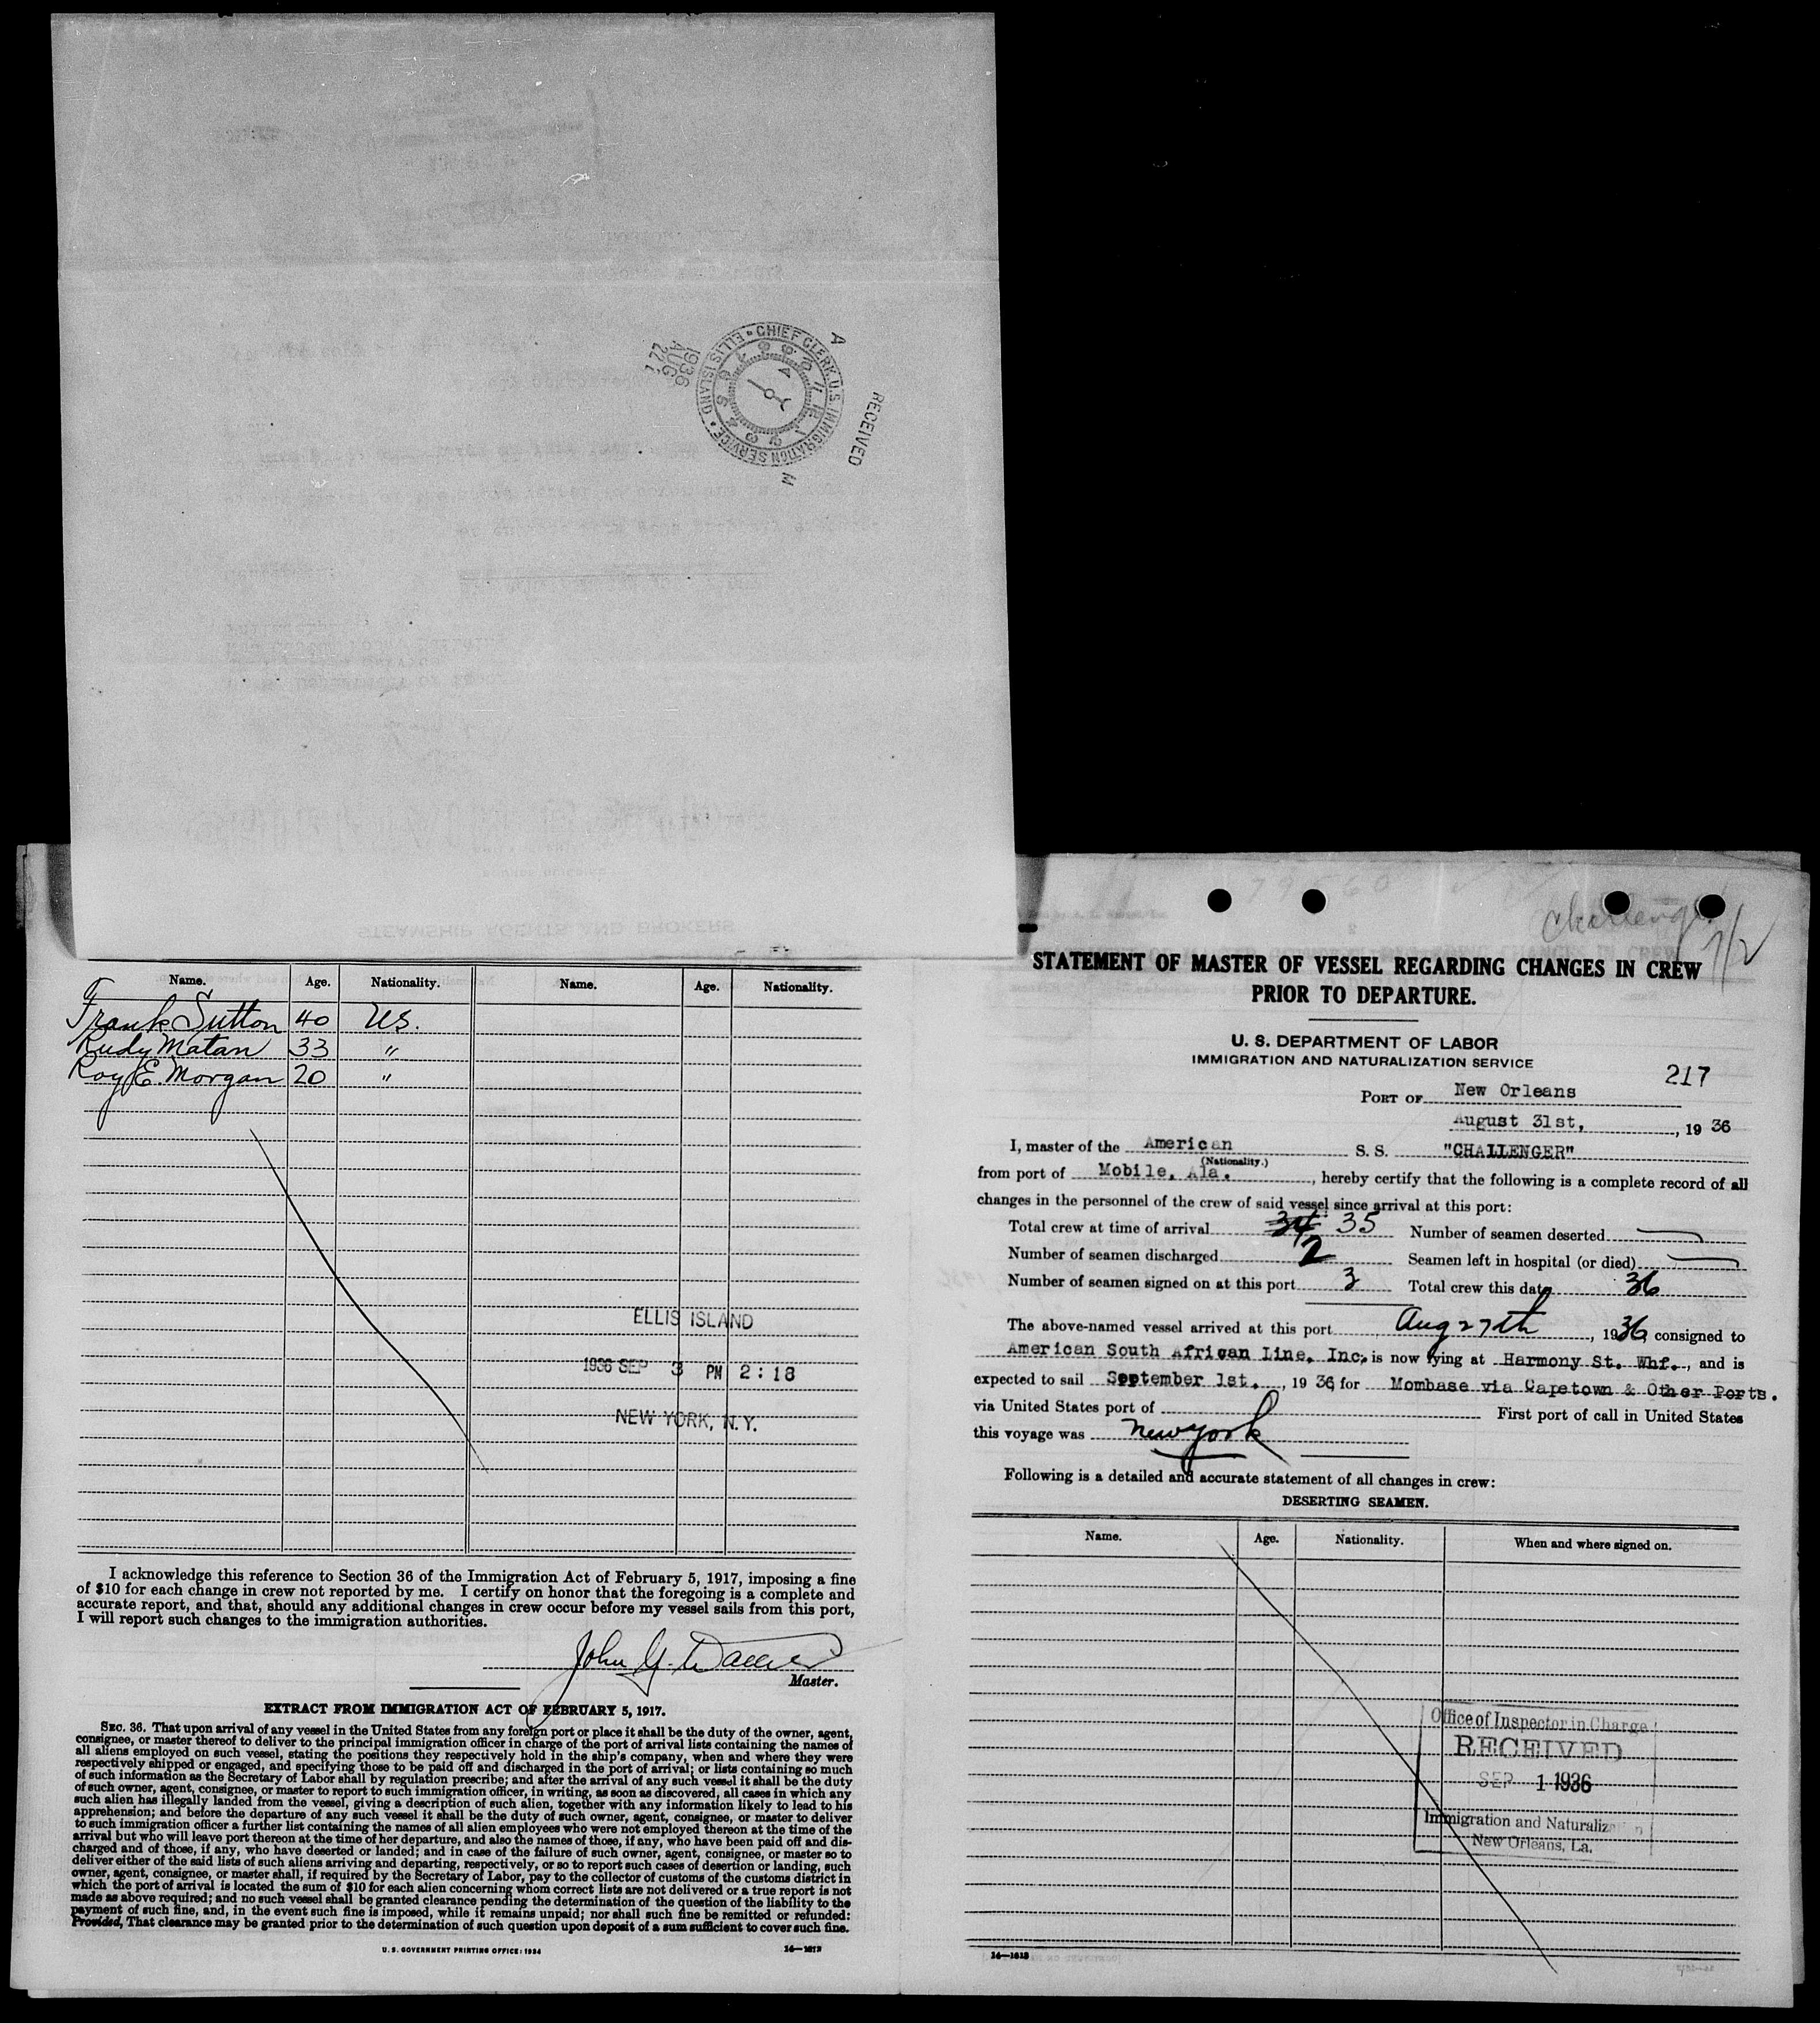 RECEIVED
A
M
CHIEF CLERK, U.S. IMMIGRATION SERVICE • ELLIS ISLAND •
1936
AUG
22
STEAMSHIP AGENTS AND BROKERS
Name. Age. Nationality. Name. Age. Nationality.
Frank Sutton 40 U.S.
Rudy Matan 33 "
Roy E. Morgan 20 "
ELLIS ISLAND
1936 SEP 3 PM 2:18
NEW YORK, N.Y.
I acknowledge this reference to Section 36 of the Immigration Act of February 5, 1917, imposing a fine
of $10 for each change in crew not reported by me. I certify on honor that the foregoing is a complete and
accurate report, and that, should any additional changes in crew occur before my vessel sails from this port,
I will report such changes to the immigration authorities.
John G.
Master.
EXTRACT FROM IMMIGRATION ACT OF FEBRUARY 5, 1917.
SEC. 36. That upon arrival of any vessel in the United States from any foreign port or place it shall be the duty of the owner, agent,
consignee, or master thereof to deliver to the principal immigration officer in charge of the port of arrival lists containing the names of
all aliens employed on such vessel, stating the positions they respectively hold in the ship's company, when and where they were
respectively shipped or engaged, and specifying those to be paid off and discharged in the port of arrival; or lists containing so much
of such information as the Secretary of Labor shall by regulation prescribe; and after the arrival of any such vessel it shall be the duty
of such owner, agent, consignee, or master to report to such immigration officer, in writing, as soon as discovered, all cases in which any
such alien has illegally landed from the vessel, giving a description of such alien, together with any information likely to lead to his
apprehension; and before the departure of any such vessel it shall be the duty of such owner, agent, consignee, or master to deliver
to such immigration officer a further list containing the names of all alien employees who were not employed thereon at the time of the
arrival but who will leave port thereon at the time of her departure, and also the names of those, if any, who have been paid off and dis-
charged and of those, if any, who have deserted or landed; and in case of the failure of such owner, agent, consignee, or master so to
deliver either of the said lists of such aliens arriving and departing, respectively, or so to report such cases of desertion or landing, such
owner, agent, consignee, or master shall, if required by the Secretary of Labor, pay to the collector of customs of the customs district in
which the port of arrival is located the sum of $10 for each alien concerning whom correct lists are not delivered or a true report is not
made as above required; and no such vessel shall be granted clearance pending the determination of the question of the liability to the
payment of such fine, and, in the event such fine is imposed, while it remains unpaid; nor shall such fine be remitted or refunded:
Provided, That clearance may be granted prior to the determination of such question upon deposit of a sum sufficient to cover such fine.
U. S. GOVERNMENT PRINTING OFFICE: 1934 14—1613
79560
Challenger
STATEMENT OF MASTER OF VESSEL REGARDING CHANGES IN CREW
PRIOR TO DEPARTURE.
U. S. DEPARTMENT OF LABOR
IMMIGRATION AND NATURALIZATION SERVICE
217
PORT OF New Orleans
August 31st, , 19 36
I, master of the American S. S. "CHALLENGER"
(Nationality.)
from port of Mobile, Ala. , hereby certify that the following is a complete record of all
changes in the personnel of the crew of said vessel since arrival at this port:
Total crew at time of arrival 34 35 Number of seamen deserted
Number of seamen discharged 2 Seamen left in hospital (or died)
Number of seamen signed on at this port 3 Total crew this date 36
The above-named vessel arrived at this port Aug 27th , 1936, consigned to
American South African Line, Inc. is now lying at Harmony St. Whf. , and is
expected to sail September 1st. , 19 36, for Mombase via Capetown & Other Ports.
via United States port of First port of call in United States
this voyage was New York
Following is a detailed and accurate statement of all changes in crew:
DESERTING SEAMEN.
Name. Age. Nationality. When and where signed on.
Office of Inspector in Charge
RECEIVED
SEP 1 1936
Immigration and Naturalization
New Orleans, La.
14—1613